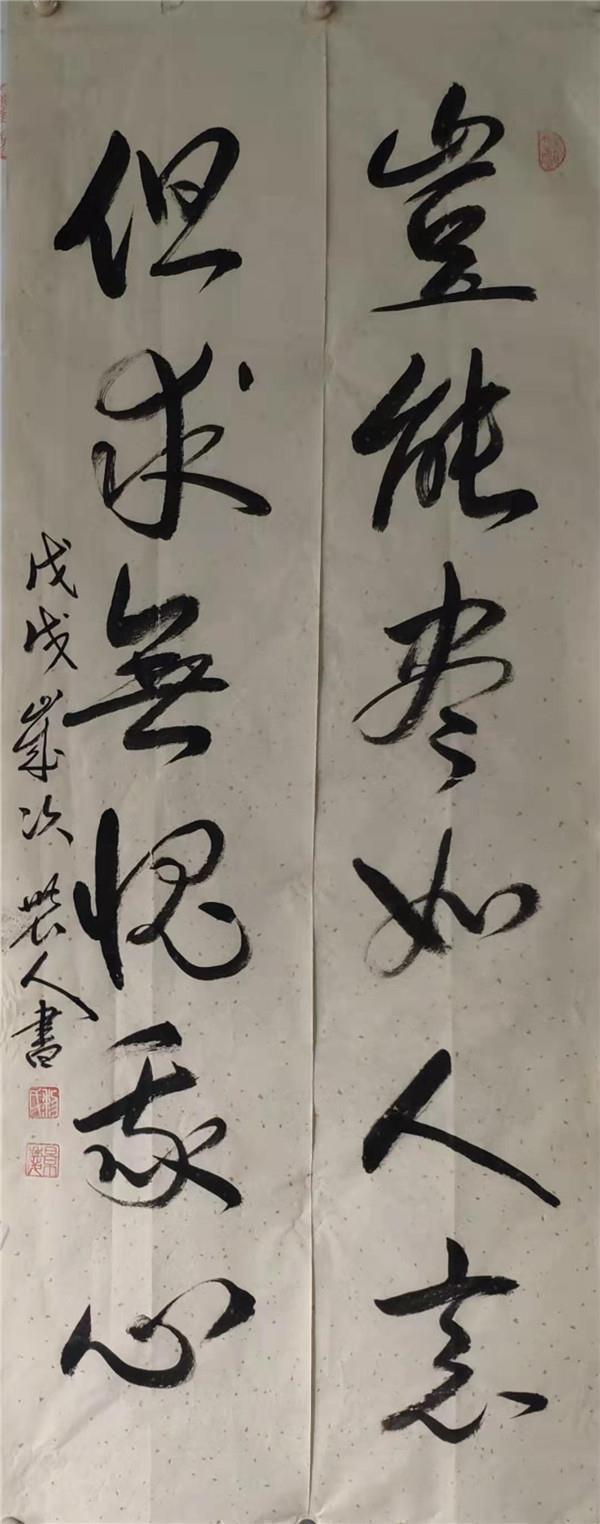 豈能尽如人意
但求無愧我心
戊戌歲次人書